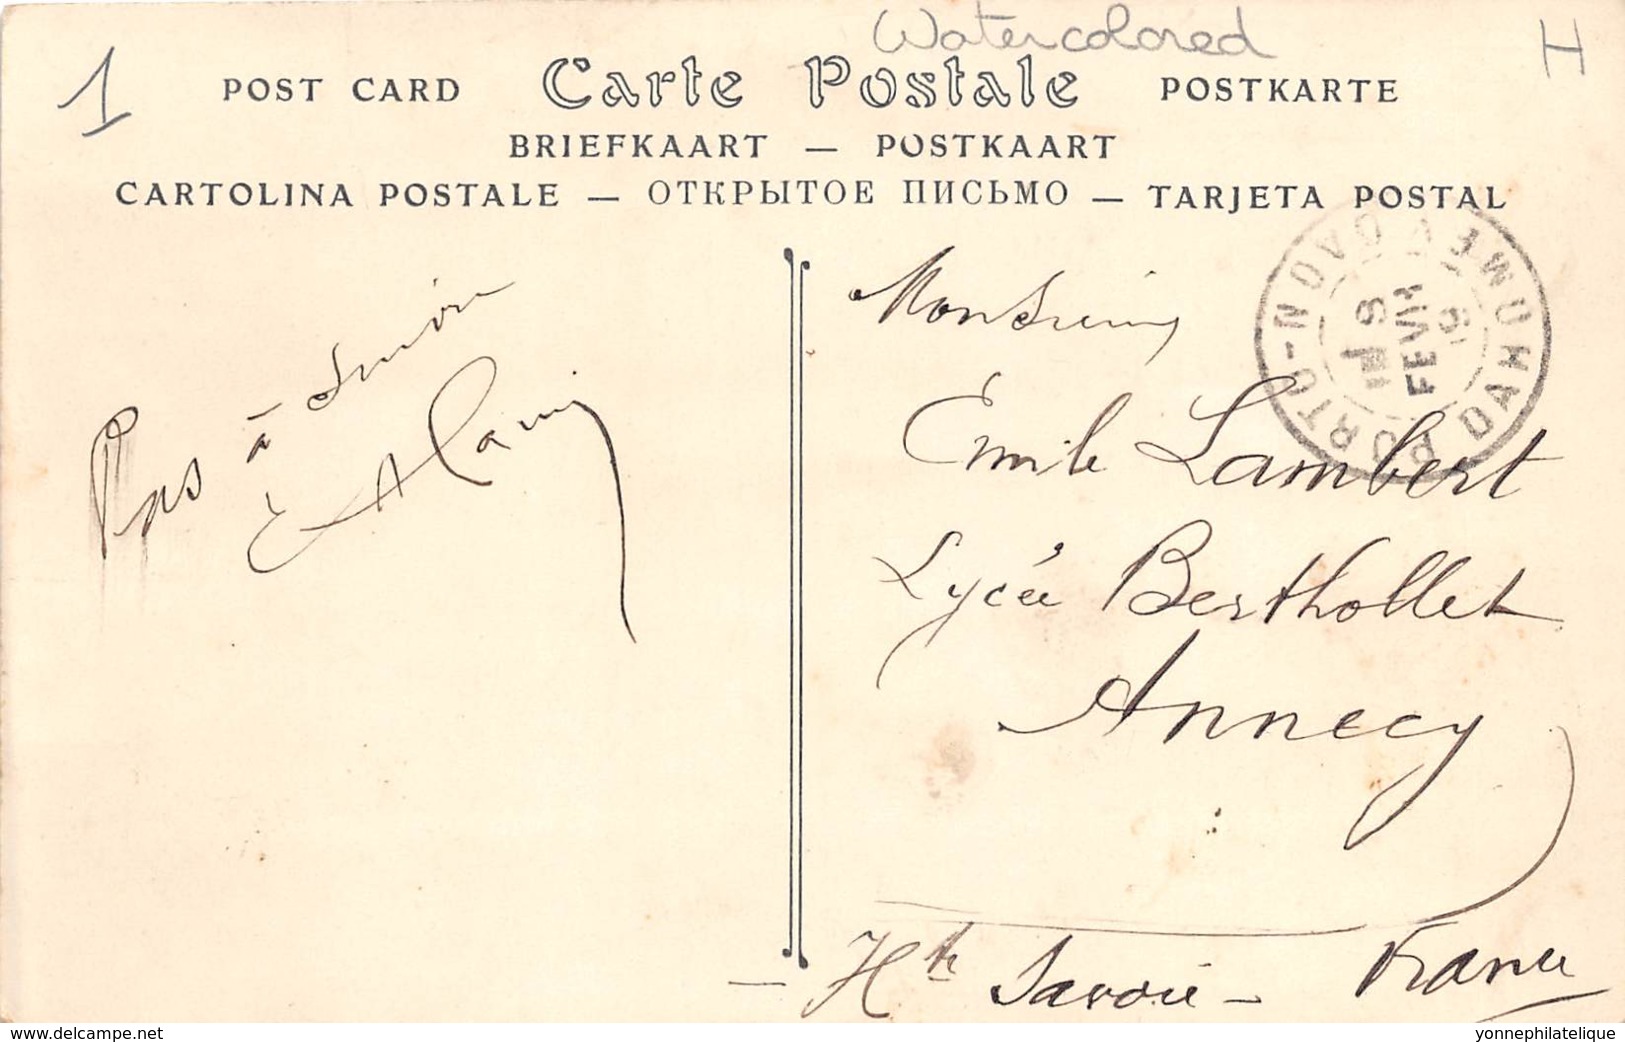 Watercolored
H
1
POST CARD Carte Postale POSTKARTE
BRIEFKAART — POSTKAART
CARTOLINA POSTALE — ОТКРЫТОЕ ПИСЬМО — TARJETA POSTAL
PORTO-NOVO DAHOMEY
9
FEVR
19
Pas à
Monsieur
Emile Lambert
Lycée Berthollet
Annecy
Hte Savoie - France
www.delcampe.net
yonnephilatelique